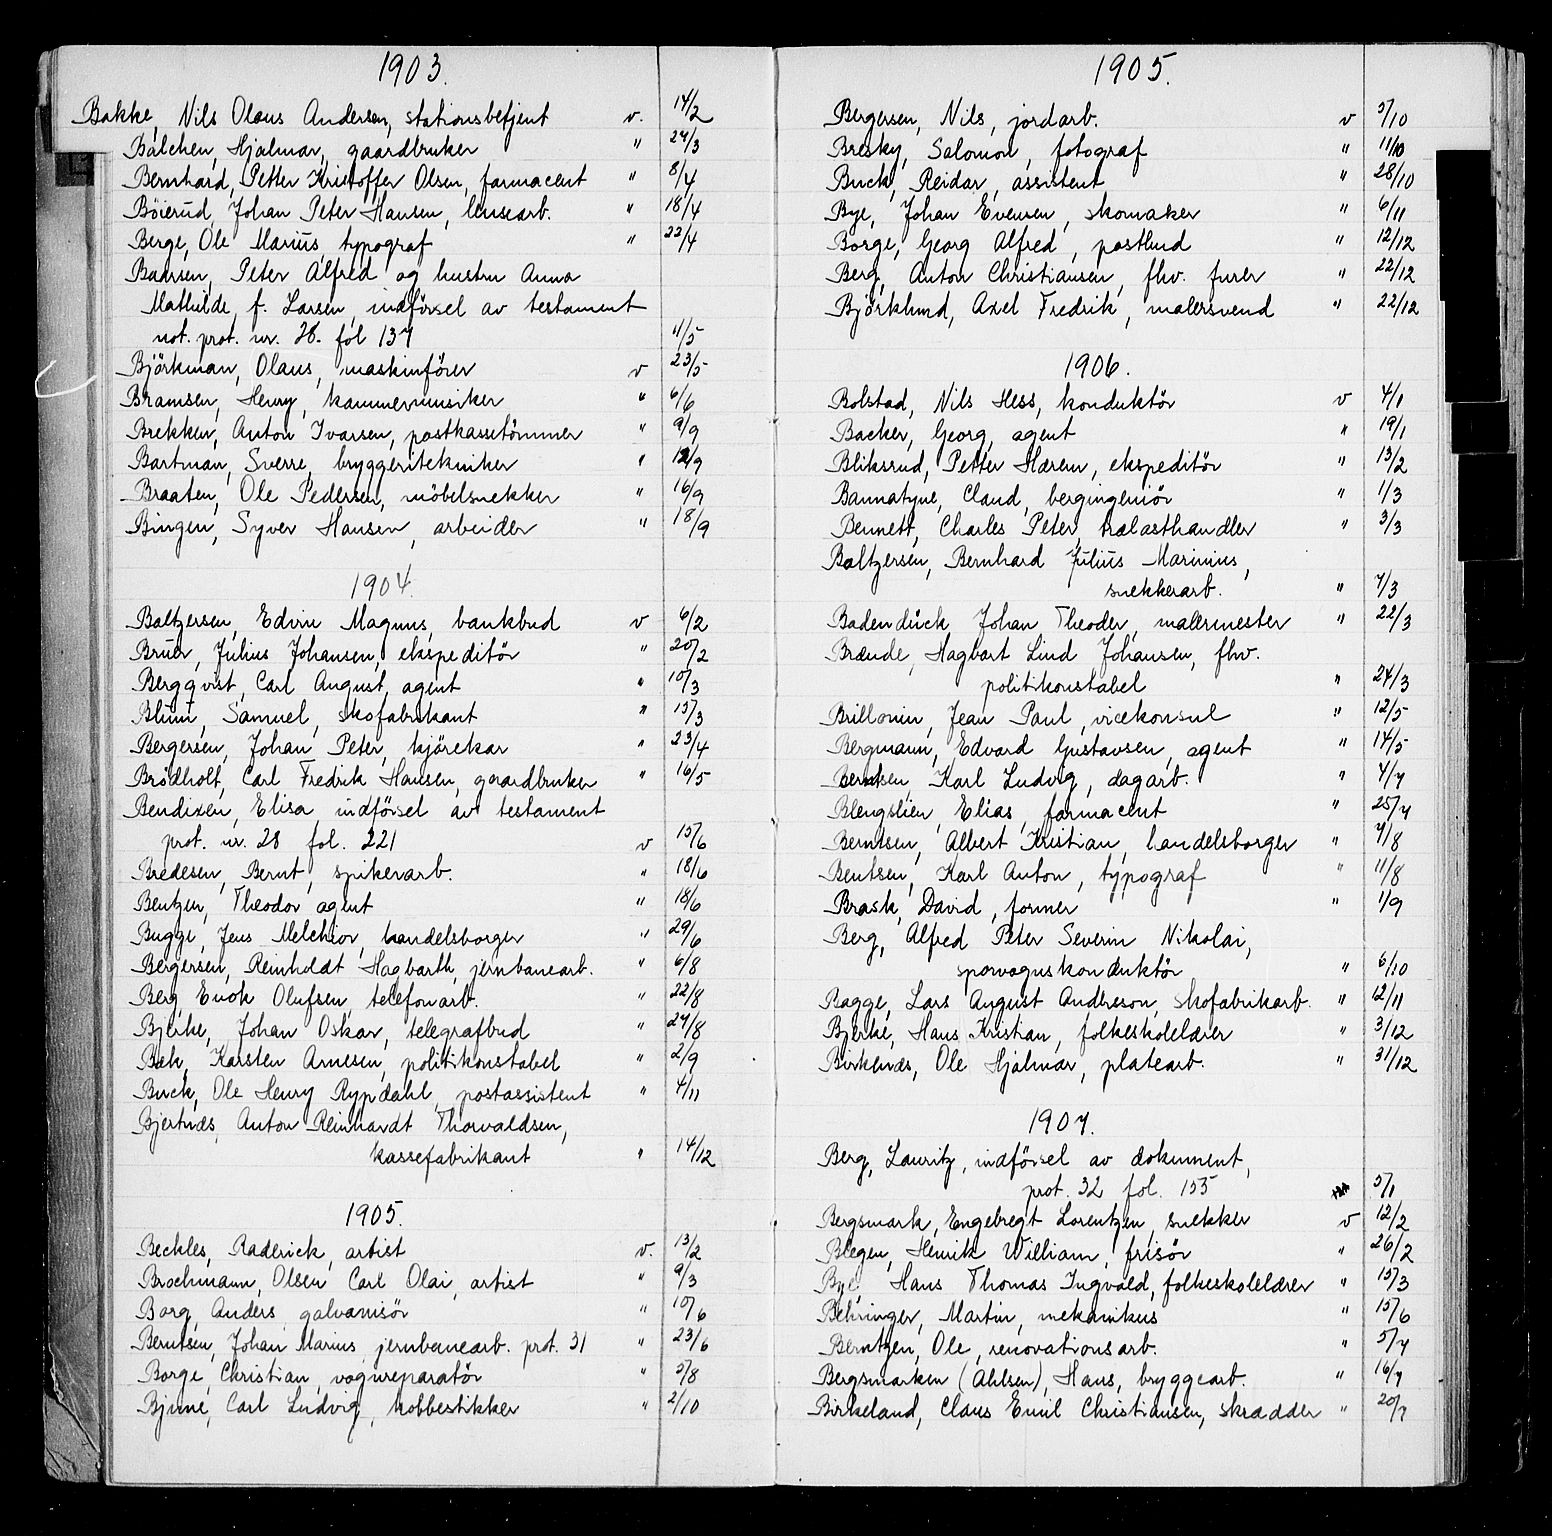 1903.
Bakke, Nils Olaus Andersen, stationsbetjent v. 14/2
Balchen, Hjalmar, gaardbruker " 24/3
Bernhard, Petter Kristoffer Olsen, farmacent " 8/4
Böierud, Johan Peter Hansen, lensearb. " 18/4
Berge, Ole Marius, typograf " 22/4
Baarsen, Peter Alfred og hustru Anna
Mathilde, f. Larsen, indförsel av testament
not. prot. nr. 28. fol 137 11/5
Björkman, Olaus, maskinförer v 23/5
Bramsen, Henry, kammermusiker " 6/6
Brekken, Anton Ivarsen, postkassetömmer " 9/9
Bartman, Sverre, bryggeritekniker " 12/9
Braaten, Ole Pedersen, möbelsnekker " 16/9
Bingen, Syver Hansen, arbeider " 18/9
1904.
Baltzersen, Edvin Magnus, bankbud v 6/2
Bruer, Julius Johansen, ekspeditör " 20/2
Bergqvist, Carl August, agent " 10/3
Blum, Samuel, skofabrikant " 15/3
Bergersen, Johan Peter, kjörekar " 23/4
Brödholt, Carl Fredrik Hansen, gaardbruker " 16/5
Bendixen, Elisa, indförsel av testament
prot. nr. 28 fol. 221 v 15/6
Bredesen, Bernt, spikerarb. " 18/6
Bentzen, Theodor agent " 18/6
Bugge, Jens Melchior, handelsborger " 29/6
Bergersen, Reinholdt Hagbarth, jernbanearb. " 6/8
Berg Enok Olufsen, telefonarb. " 22/8
Bjerke, Johan Oskar, telegrafbud " 24/8
Bæk, Karsten Arnesen, politikonstabel " 2/9
Buck, Ole Henry Rypdahl, postassistent " 4/11
Bjertnæs, Anton Reinhardt Thorvaldsen,
kassefabrikant " 14/12
1905.
Beckles, Raderick, artist v. 13/2
Brochmann, Olsen Carl Olai, artist " 9/3
Borg, Anders, galvanisör " 10/6
Berntsen, Johan Marius, jernbanearb. prot. 31 " 23/6
Borge, Christian, vognreparatör " 5/8
Bjune, Carl Ludvig, kobberstikker " 2/10
1905.
Bergersen, Nils, jordarb. v 5/10
Bresky, Salomon, fotograf " 11/10
Buck, Reidar, assistent " 28/10
Bye, Johan Evensen, skomaker " 6/11
Borge, Georg Alfred, postbud " 12/12
Berg, Anton Christiansen, fhv. furer " 22/12
Björklund, Axel Fredrik, malersvend " 22/12
1906.
Bolstad, Nils Hess, konduktör v 4/1
Backer, Georg, agent " 19/1
Bliksrud, Petter Hærem, ekspeditör " 13/2
Bannatyne, Claud, bergingeniör " 1/3
Bennett, Charles Peter, trælasthandler " 3/3
Baltzersen, Bernhard Julius Marinius,
snekkerarb. " 7/3
Badendück Johan Theodor, malermester " 22/3
Brænde, Hagbart Lind Johansen, fhv.
politikonstabel " 24/3
Brillouin, Jean Paul, vicekonsul " 12/5
Bergmann, Edvard Gustavsen, agent " 14/5
Berntsen, Karl Ludvig, dagarb. " 4/7
Blengslien, Elias, farmacent " 25/7
Berntsen, Albert Kristian, handelsborger " 7/8
Bentsen, Karl Anton, typograf " 11/8
Brask, David, former " 1/9
Berg, Alfred Peter Severin Nikolai,
sporvognskonduktör " 6/10
Bagge, Lars August Anderson, skofabrikarb. " 12/11
Bjerke, Hans Kristian, folkeskolelærer " 3/12
Birkenæs, Ole Hjalmar, platearb. " 31/12
1907.
Berg, Lauritz, indförsel av dokument,
prot. 32 fol. 155 5/1
Bergsmark, Engebregt Lorentzen, snekker v 12/2
Blegen, Henrik William, frisör " 26/2
Bye, Hans Thomas Ingvald, folkeskolelærer " 15/3
Behringer, Martin, mekanikus " 15/6
Berntzen, Ole, renovationsarb. " 5/7
Bergsmarken (Ahlsen), Hans, bryggearb. " 16/7
Birkeland, Claus Emil Christiansen, skrædder " 20/7